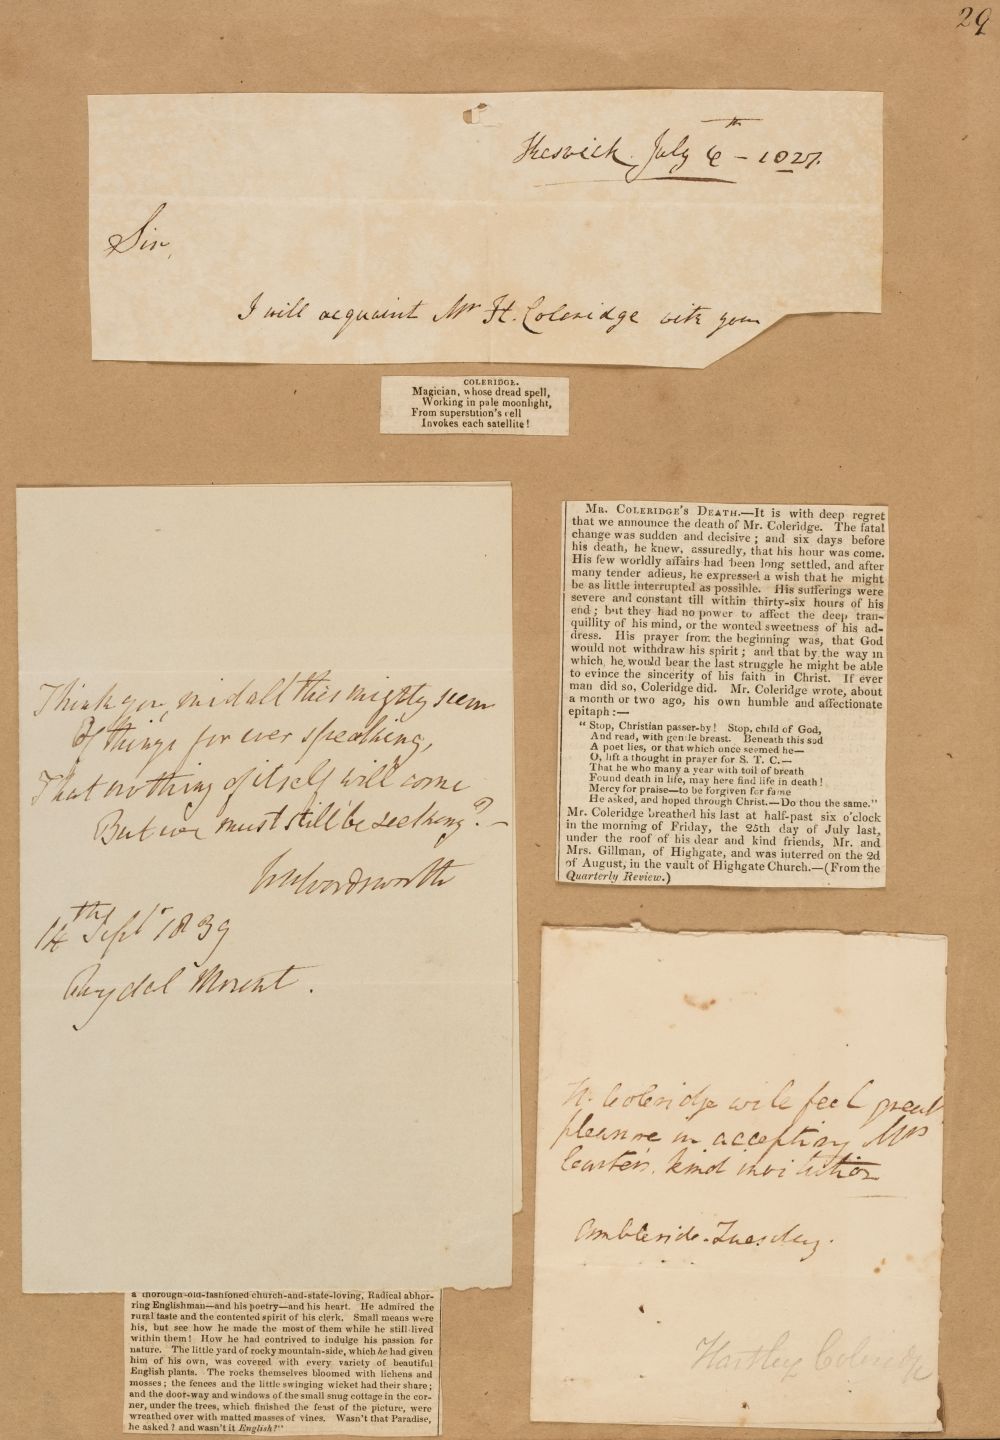 29
Keswick. July 6th – 1827.
Sir,
I will acquaint Mr H. Coleridge with your
COLERIDGE.
Magician, whose dread spell,
Working in pale moonlight,
From superstition's cell
Invokes each satellite!
Think you, mid all this mighty sum
Of things for ever speaking,
That nothing of itself will come
But we must still be seeking? –
Wm Wordsworth
14th Septr 1839
Rydal Mount.
MR. COLERIDGE'S DEATH.—It is with deep regret
that we announce the death of Mr. Coleridge. The fatal
change was sudden and decisive; and six days before
his death, he knew, assuredly, that his hour was come.
His few worldly affairs had been long settled, and after
many tender adieus, he expressed a wish that he might
be as little interrupted as possible. His sufferings were
severe and constant till within thirty-six hours of his
end; but they had no power to affect the deep tran-
quillity of his mind, or the wonted sweetness of his ad-
dress. His prayer from the beginning was, that God
would not withdraw his spirit; and that by the way in
which he would bear the last struggle he might be able
to evince the sincerity of his faith in Christ. If ever
man did so, Coleridge did. Mr. Coleridge wrote, about
a month or two ago, his own humble and affectionate
epitaph:—
"Stop, Christian passer-by! Stop, child of God,
And read, with gentle breast. Beneath this sod
A poet lies, or that which once seemed he—
O, lift a thought in prayer for S. T. C.—
That he who many a year with toil of breath
Found death in life, may here find life in death!
Mercy for praise—to be forgiven for fame
He asked, and hoped through Christ.—Do thou the same."
Mr. Coleridge breathed his last at half-past six o'clock
in the morning of Friday, the 25th day of July last,
under the roof of his dear and kind friends, Mr. and
Mrs. Gillman, of Highgate, and was interred on the 2d
of August, in the vault of Highgate Church.—(From the
Quarterly Review.)
H. Coleridge will feel great
pleasure in accepting Mrs
Carter's kind invitation
Ambleside. Tuesday.
Hartley Coleridge
a thorough old-fashioned church-and-state-loving, Radical abhor-
ring Englishman—and his poetry—and his heart. He admired the
rural taste and the contented spirit of his clerk. Small means were
his, but see how he made the most of them while he still lived
within them! How he had contrived to indulge his passion for
nature. The little yard of rocky mountain-side, which he had given
him of his own, was covered with every variety of beautiful
English plants. The rocks themselves bloomed with lichens and
mosses; the fences and the little swinging wicket had their share;
and the door-way and windows of the small snug cottage in the cor-
ner, under the trees, which finished the feast of the picture, were
wreathed over with matted masses of vines. Wasn't that Paradise,
he asked? and wasn't it English?"